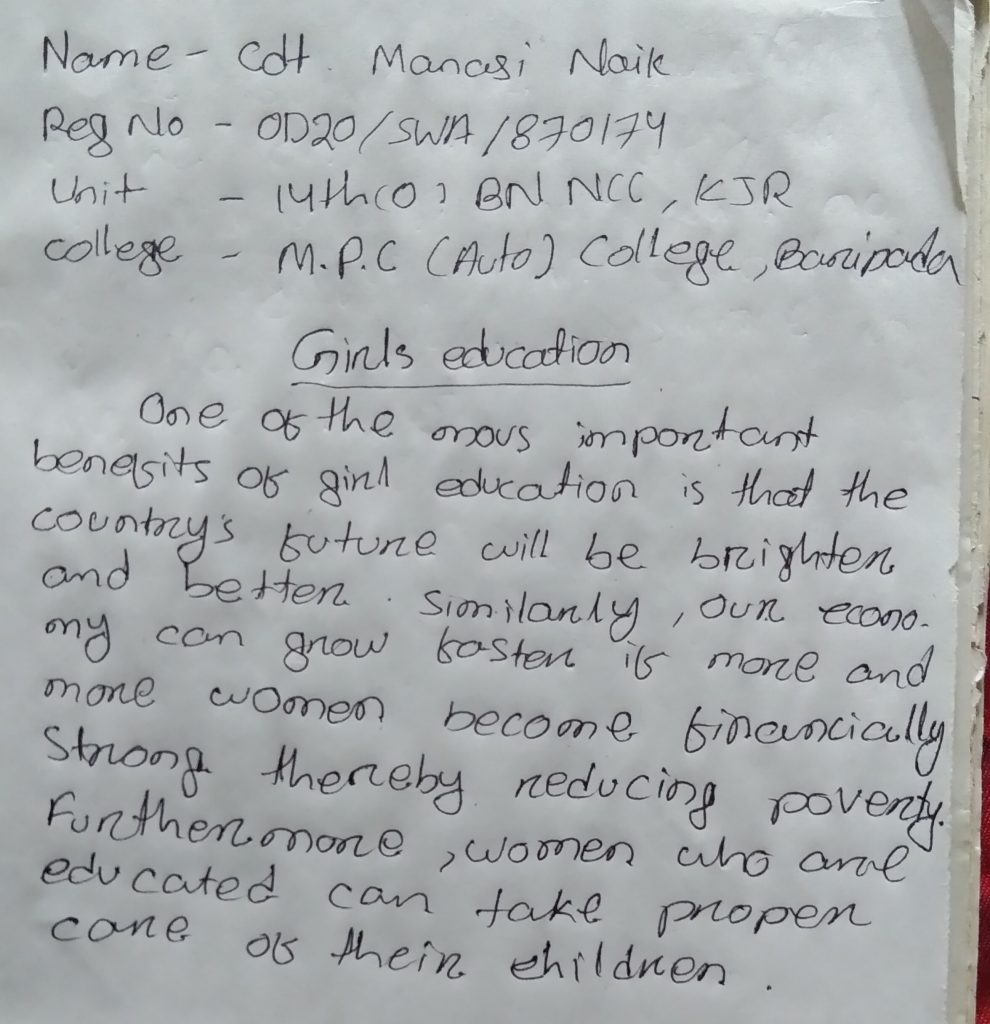 Name - Cdt. Manasi Naik
Reg No - OD20/SWA/870174
Unit - 14th(O) BN NCC, KJR
college - M.P.C (Auto) College, Baripada
Girls education
One of the mous important
benefits of girl education is that the
country's future will be brighter
and better. Similarly, our econo-
my can grow faster if more and
more women become financially
Strong thereby reducing poverty.
Furthermore, women who are
educated can take proper
care of their children.